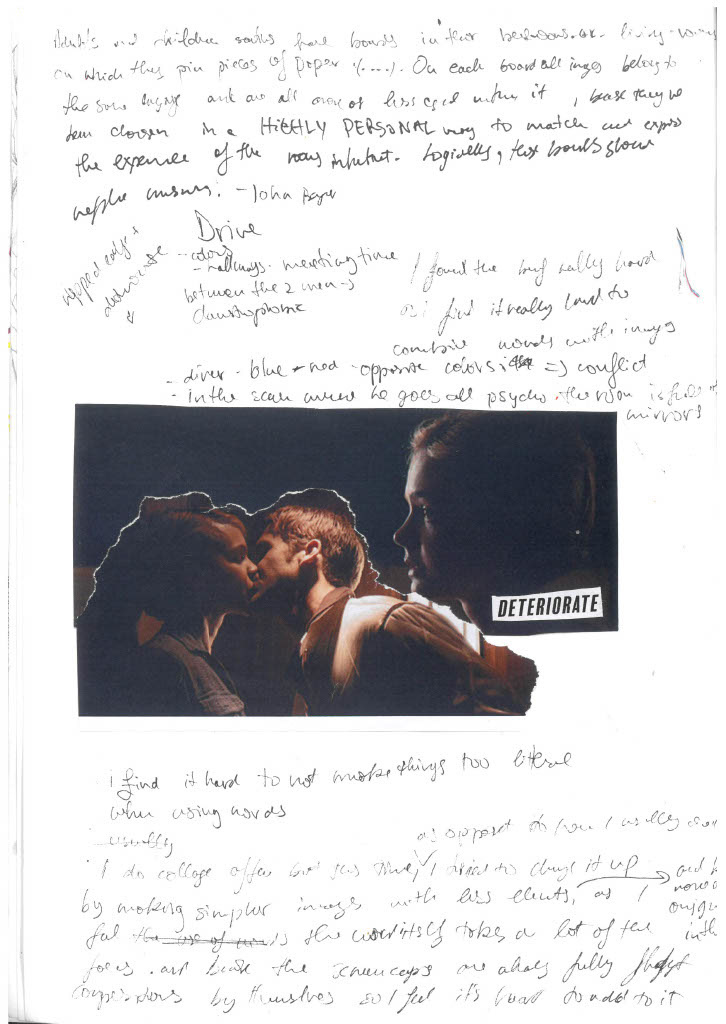 Adults and children sometimes have boards in their bedrooms or living-rooms
on which they pin pieces of paper (.....). On each board all images belong to
the same language and are all more or less equal within it, because they've
been chosen in a HIGHLY PERSONAL way to match and express
the experience of the room's inhabitant. Logically, these boards should
replace museums. - John Berger
Drive
- colors
ripped edges +
- hallways - meeting time
between the 2 men ->
claustrophobic
I found the brief really hard
as i find it really hard to
combine words with images
- driver - blue + red - opposite colors => conflict
- In the scene where he goes all psycho the room is full of
mirrors
DETERIORATE
i find it hard to not make things too literal
when using words
usually
as opposed to how I usually
I do collage often but this time, I tried to change it up
by making simpler images with less elements, as I
feel the use of is the word itself takes a lot of the
focus and because the screencaps are already fully
compositions by themselves so I feel it's hard to add to it